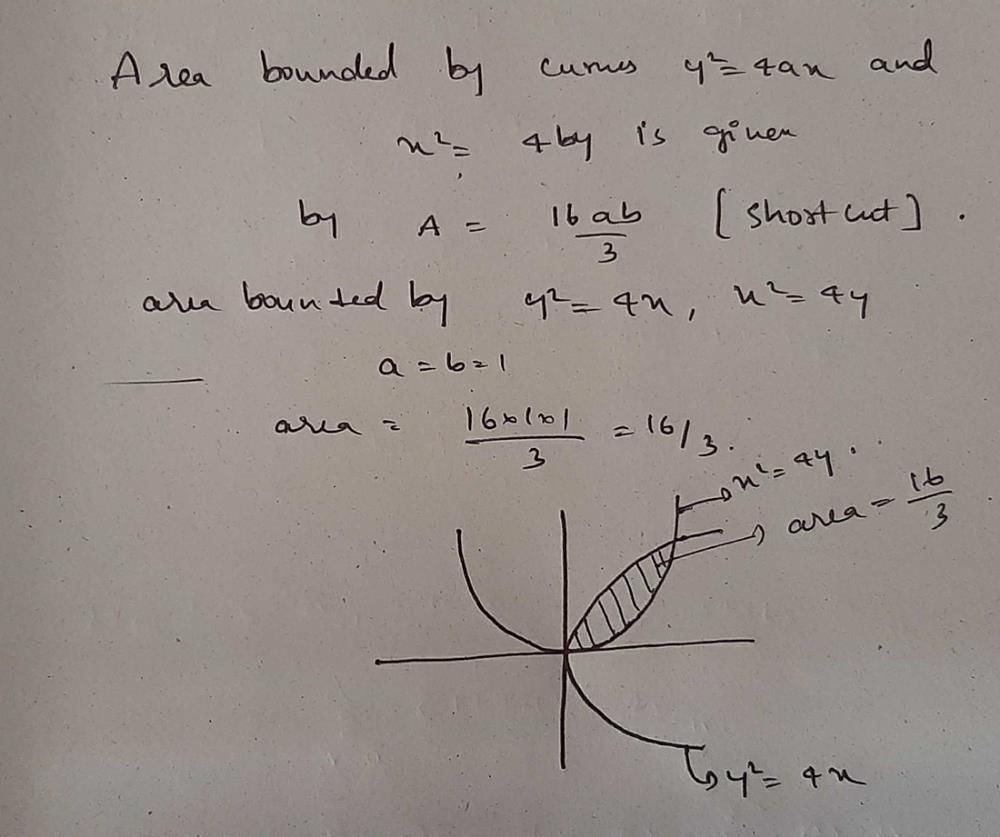 Area bounded by curves y²=4ax and
x²= 4by is given
by A = 16ab/3 [short cut].
area bounded by y²=4x, x²=4y
a=b=1
area = 16x1x1/3 = 16/3.
x²=4y.
area = 16/3
y²=4x